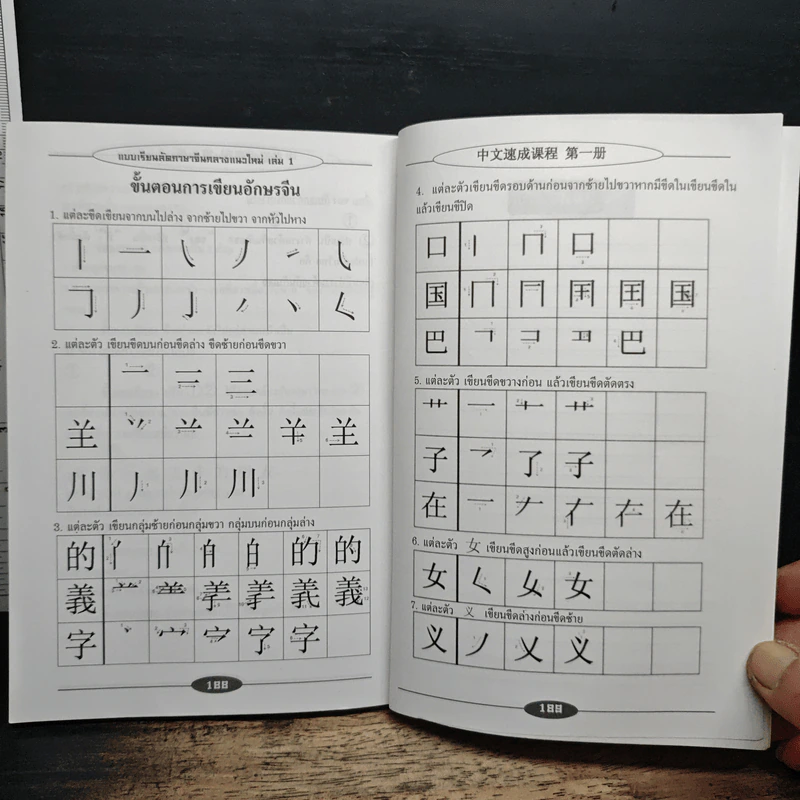 แบบเรียนลัดภาษาจีนกลางแนวใหม่ เล่ม 1
ขั้นตอนการเขียนอักษรจีน
1. แต่ละขีดเขียนจากบนไปล่าง จากซ้ายไปขวา จากหัวไปหาง
2. แต่ละตัว เขียนขีดบนก่อนขีดล่าง ขีดซ้ายก่อนขีดขวา
一 二 三
羊
羊
川
川
3. แต่ละตัว เขียนกลุ่มซ้ายก่อนกลุ่มขวา กลุ่มบนก่อนกลุ่มล่าง
的 的 的
義 義
字 字
188
中文速成课程 第一册
4. แต่ละตัวเขียนขีดรอบด้านก่อนจากซ้ายไปขวาหากมีขีดในเขียนขีดใน
แล้วเขียนขีปิด
口 口
国 国
巴 巴
5. แต่ละตัว เขียนขีดขวางก่อน แล้วเขียนขีดตัดตรง
艹 一 艹
子 了 子
在 一 在
6. แต่ละตัว 女 เขียนขีดสูงก่อนแล้วเขียนขีดตัดล่าง
女 女
7. แต่ละตัว 义 เขียนขีดล่างก่อนขีดซ้าย
义 义
189